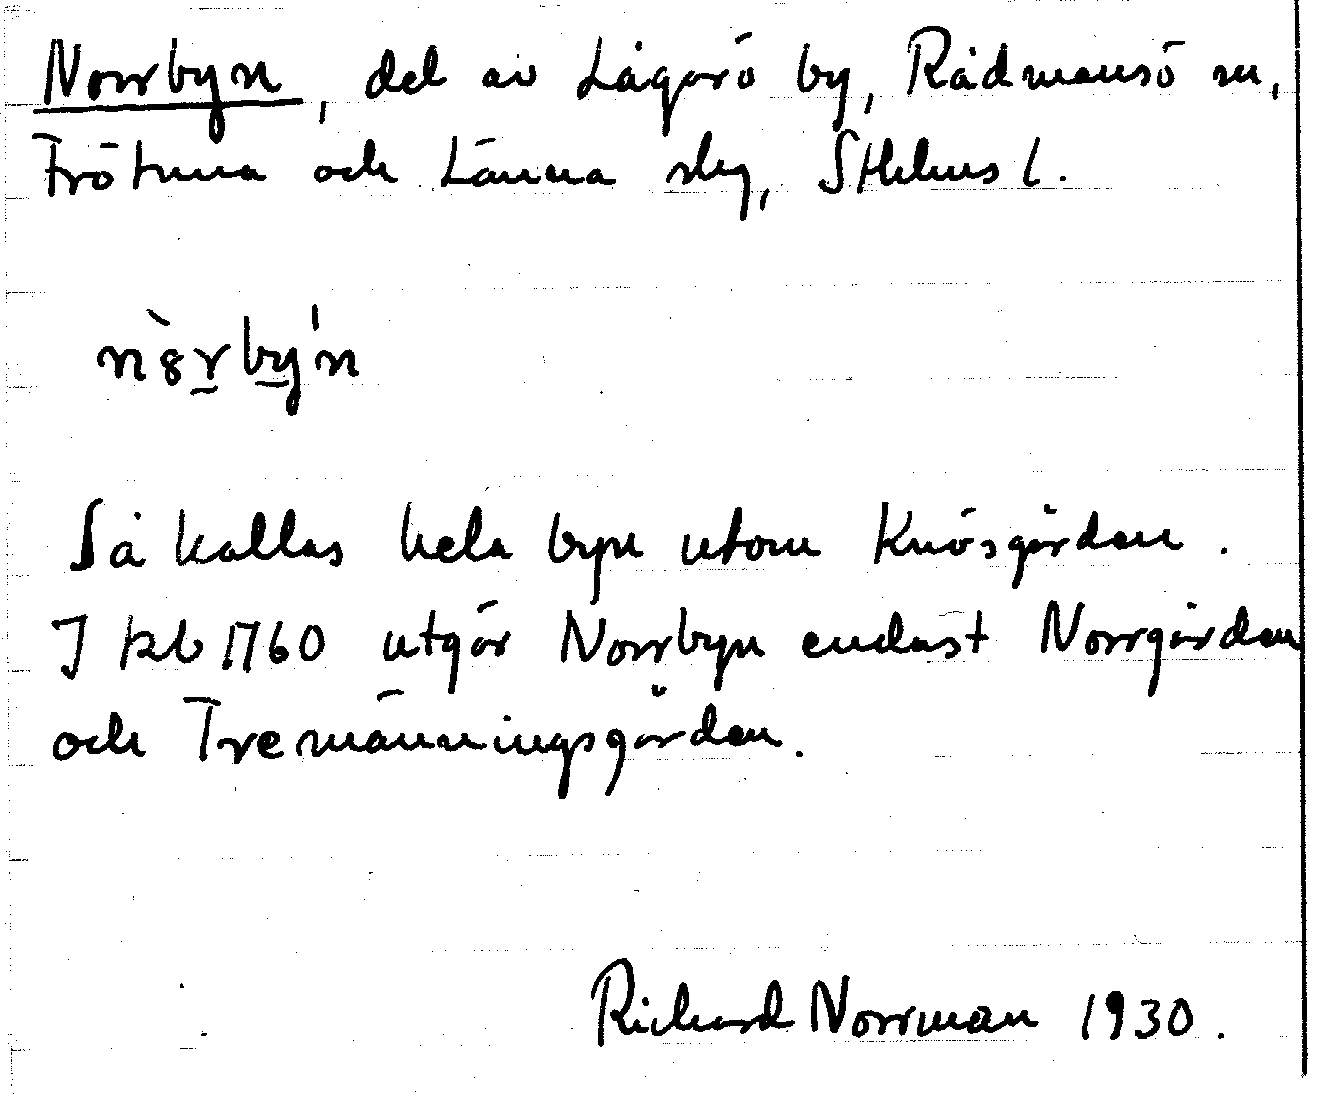 Norrbyn, del av Lågarö by, Rådmansö sn,
Frötuna och Länna slg, Sthlms l.
ǹȣrby'n
Så kallas hela byn utom Knösgården.
I kb 1760 utgör Norrbyn endast Norrgården
och Tremänningsgården.
Richard Norrman 1930.